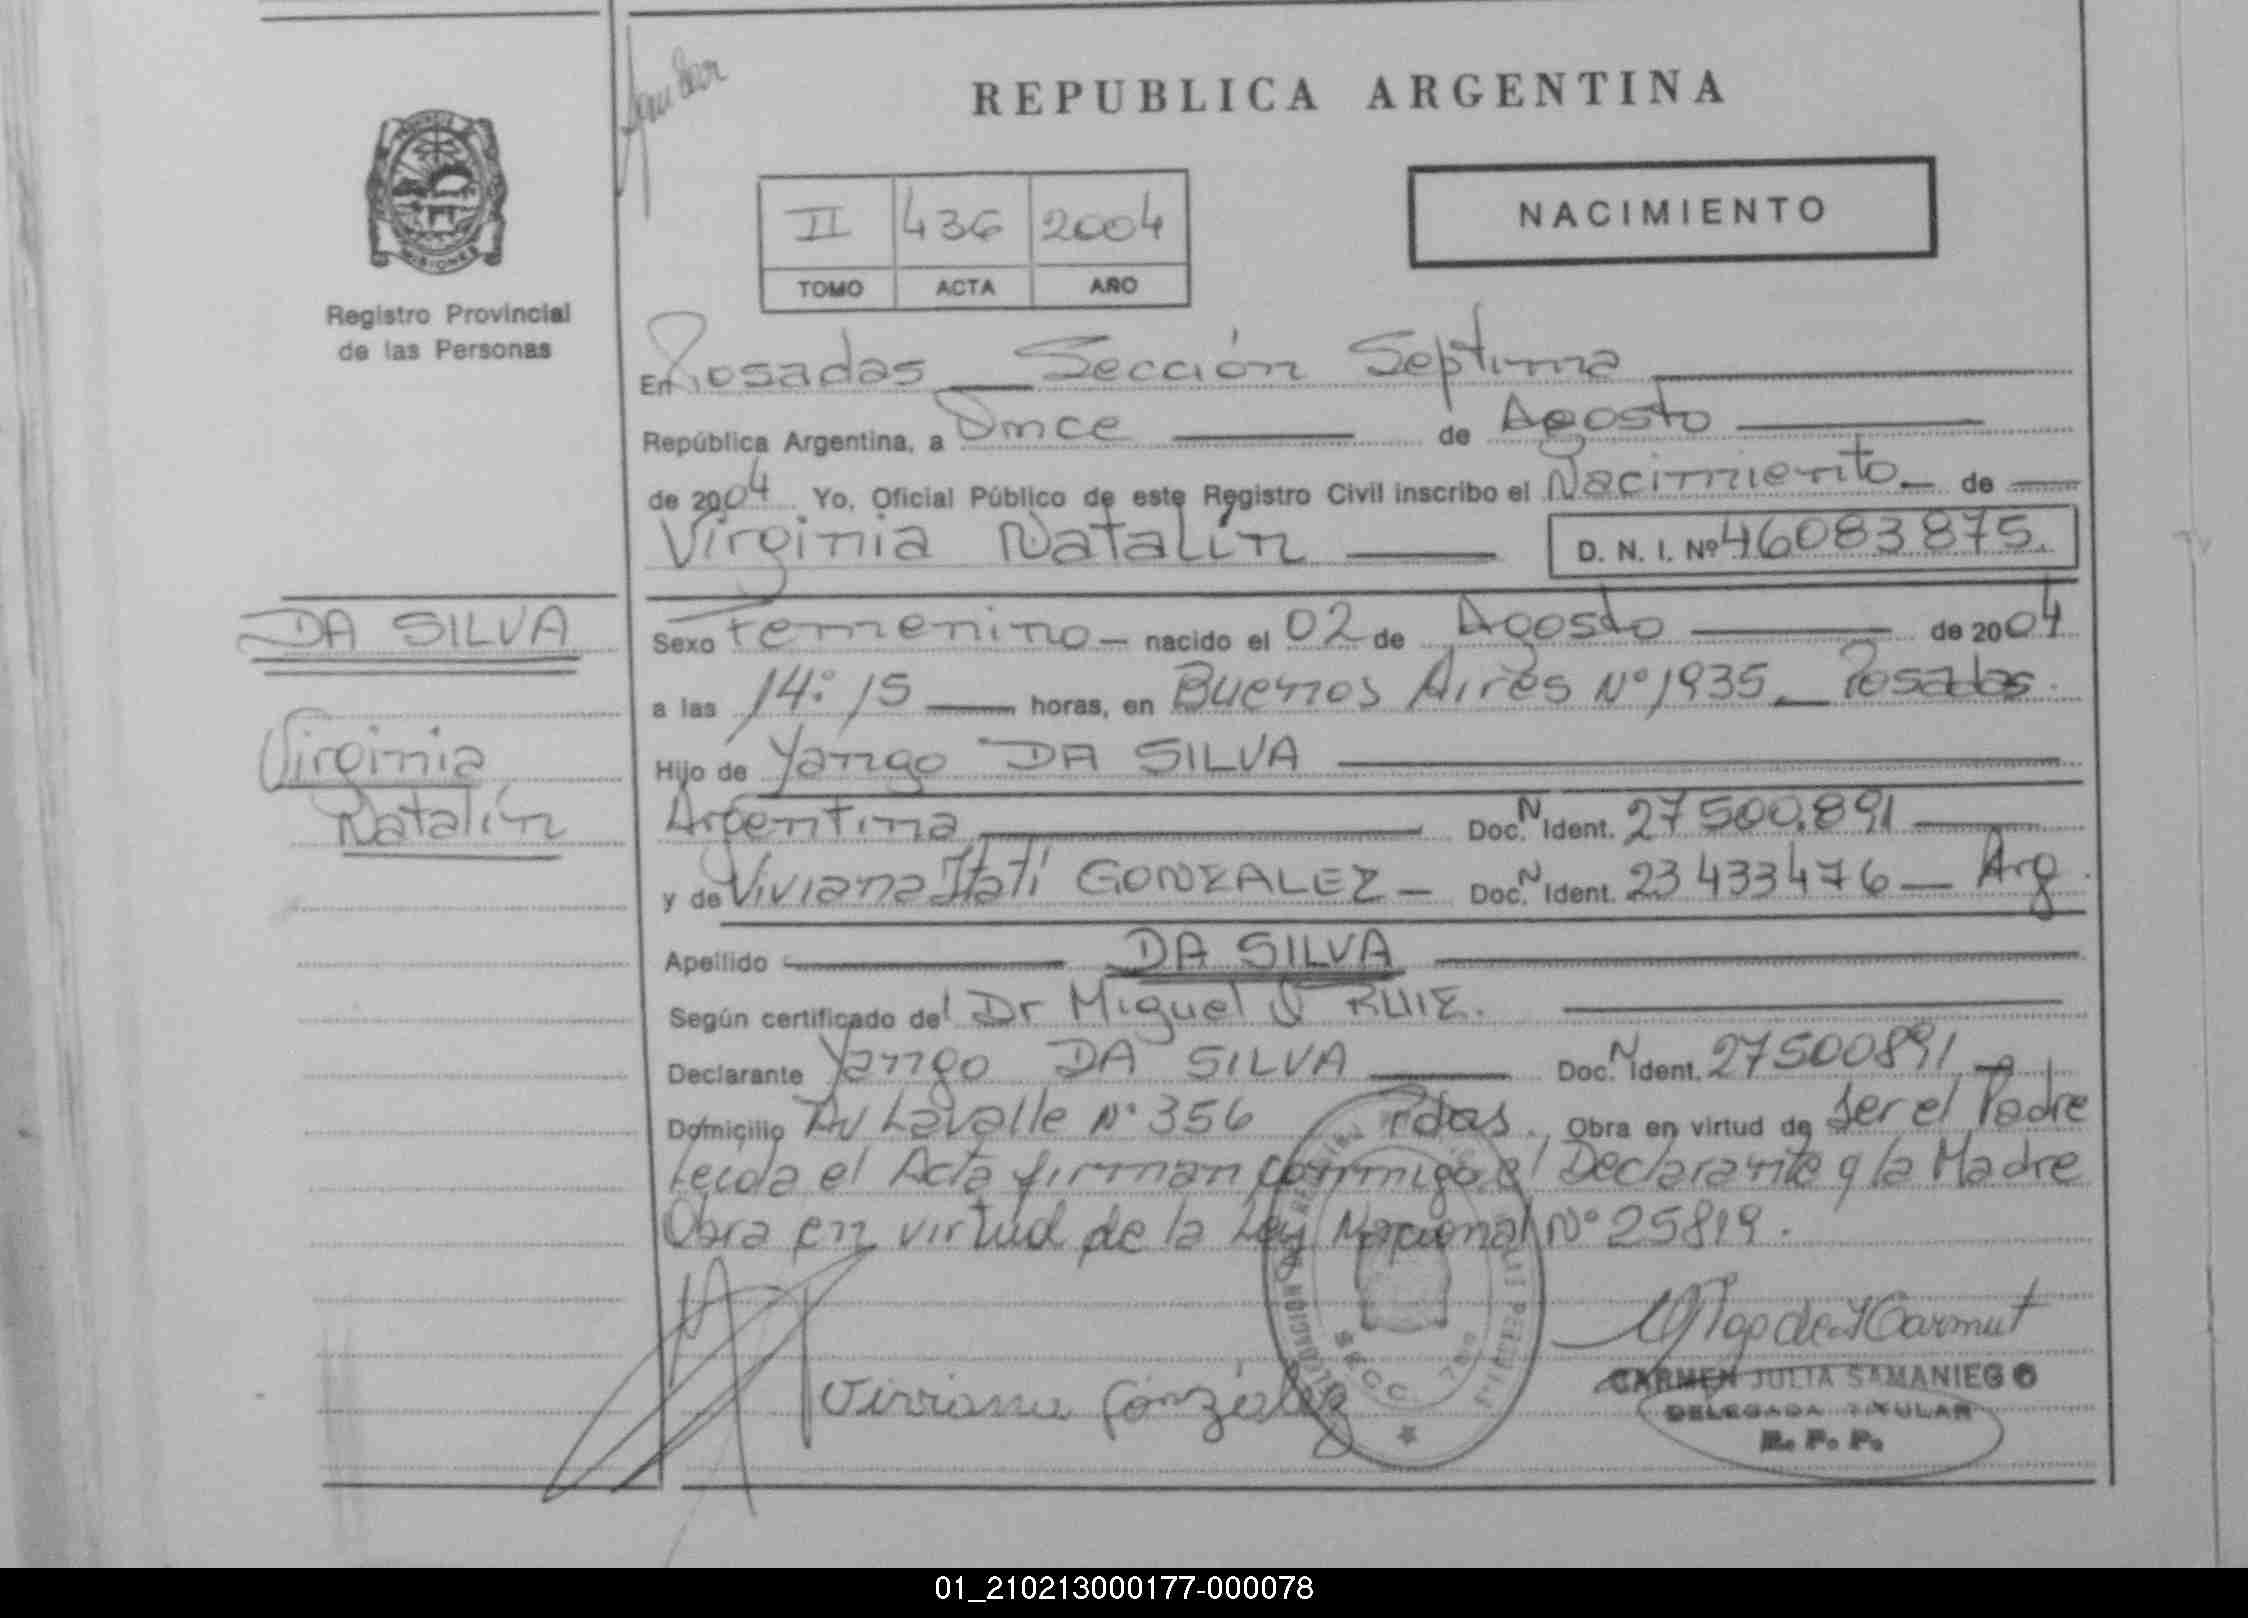 REPUBLICA ARGENTINA
PROVINCIA DE
MISIONES
Registro Provincial
de las Personas
II 436 2004
TOMO ACTA AÑO
NACIMIENTO
En Posadas Sección Septima
República Argentina, a Once de Agosto
de 2004 Yo, Oficial Público de este Registro Civil inscribo el Nacimiento de
Virginia Natalín D. N. I. Nº 46083875.
DA SILVA
Virginia
Natalín
Sexo Femenino nacido el 02 de Agosto de 2004
a las 14:15 horas, en Buenos Aires Nº 1935 Posadas.
Hijo de Yango DA SILVA
Argentina Doc. N Ident. 27500.891
y de Viviana Itatí GONZALEZ Doc. N Ident. 23433476 Arg.
Apellido DA SILVA
Según certificado del Dr Miguel RUIZ.
Declarante Yango DA SILVA Doc. N Ident. 27500891
Domicilio Av Lavalle Nº 356 Pdas. Obra en virtud de ser el Padre
Leída el Acta firman conmigo el Declarante y la Madre
Obra en virtud de la Ley Nacional Nº 25819.
SECC. 7ma
Viviana González
CARMEN JULIA SAMANIEGO
DELEGADA TITULAR
R. P. P.
01_210213000177-000078